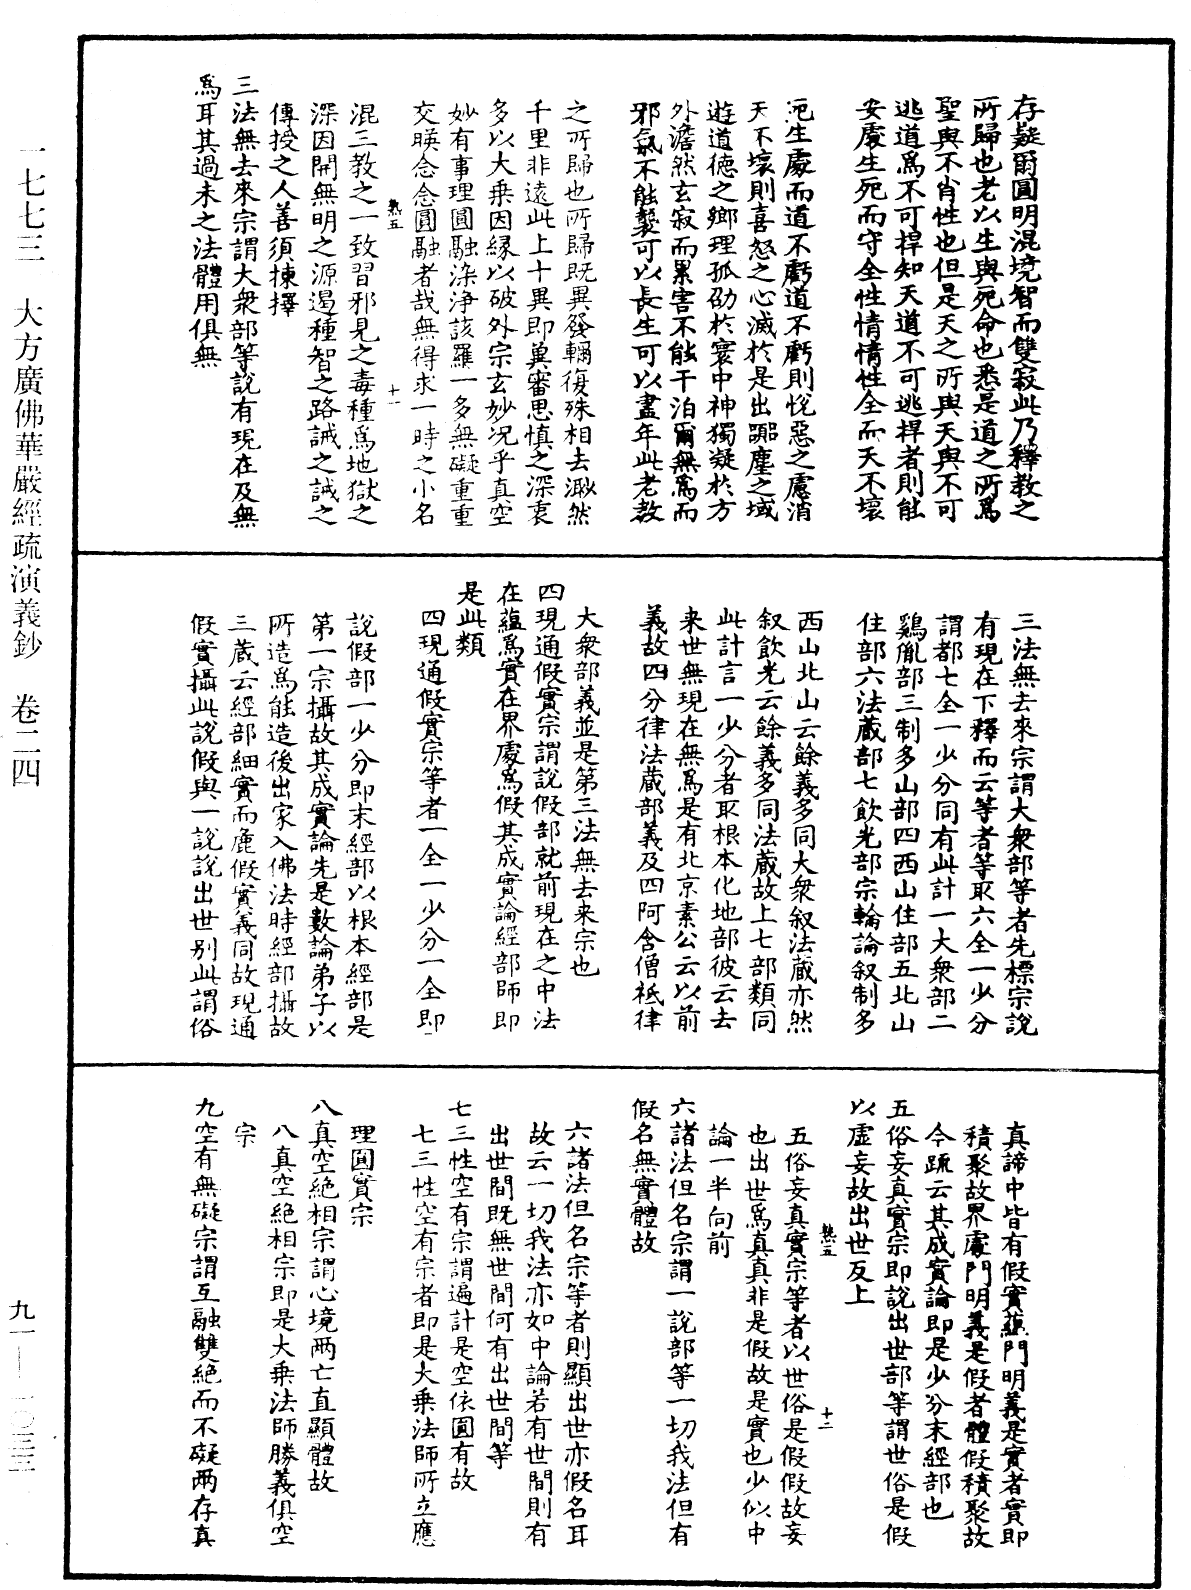 一七七三　大方廣佛華嚴經疏演義鈔　卷二四
九一——一〇三三
存疑爾圓明混境智而雙寂此乃釋教之
所歸也老以生與死命也悉是道之所爲
聖與不肖性也但是天之所與天與不可
逃道爲不可捍知天道不可逃捍者則能
安處生死而守全性情情性全而天不壞
死生處而道不虧道不虧則悅惡之慮消
天不壞則喜怒之心滅於是出囂塵之域
遊道德之鄉理孤劭於寰中神獨凝於方
外澹然玄寂而累害不能干泊爾無爲而
邪氣不能襲可以長生可以盡年此老教
之所歸也所歸既異發輈復殊相去渺然
千里非遠此上十異即冀審思慎之深衷
多以大乘因緣以破外宗玄妙況乎真空
妙有事理圓融染淨該羅一多無礙重重
交暎念念圓融者哉無得求一時之小名
熱五　十一
混三教之一致習邪見之毒種爲地獄之
深因開無明之源遏種智之路誡之誡之
傳授之人善須揀擇
三法無去來宗謂大衆部等說有現在及無
爲耳其過未之法體用俱無
三法無去來宗謂大衆部等者先標宗說
有現在下釋而云等者等取六全一少分
謂都七全一少分同有此計一大衆部二
鷄胤部三制多山部四西山住部五北山
住部六法藏部七飲光部宗輪論叙制多
西山北山云餘義多同大衆叙法藏亦然
叙飲光云餘義多同法藏故上七部類同
此計言一少分者取根本化地部彼云去
來世無現在無爲是有北京素公云以前
義故四分律法藏部義及四阿含僧祇律
大衆部義並是第三法無去來宗也
四現通假實宗謂說假部就前現在之中法
在蘊爲實在界處爲假其成實論經部師即
是此類
四現通假實宗等者一全一少分一全即
說假部一少分即末經部以根本經部是
第一宗攝故其成實論先是數論弟子以
所造爲能造後出家入佛法時經部攝故
三藏云經部細實而麁假實義同故現通
假實攝此說假與一說說出世别此謂俗
真諦中皆有假實蘊門明義是實者實即
積聚故界處門明義是假者體假積聚故
今疏云其成實論即是少分末經部也
五俗妄真實宗即說出世部等謂世俗是假
以虚妄故出世反上
熱五　十二
五俗妄真實宗等者以世俗是假假故妄
也出世爲真真非是假故是實也少似中
論一半向前
六諸法但名宗謂一說部等一切我法但有
假名無實體故
六諸法但名宗等者則顯出世亦假名耳
故云一切我法亦如中論若有世間則有
出世間既無世間何有出世間等
七三性空有宗謂遍計是空依圓有故
七三性空有宗者即是大乘法師所立應
理圓實宗
八真空絶相宗謂心境兩亡直顯體故
八真空絶相宗即是大乘法師勝義俱空
宗
九空有無礙宗謂互融雙絶而不礙兩存真